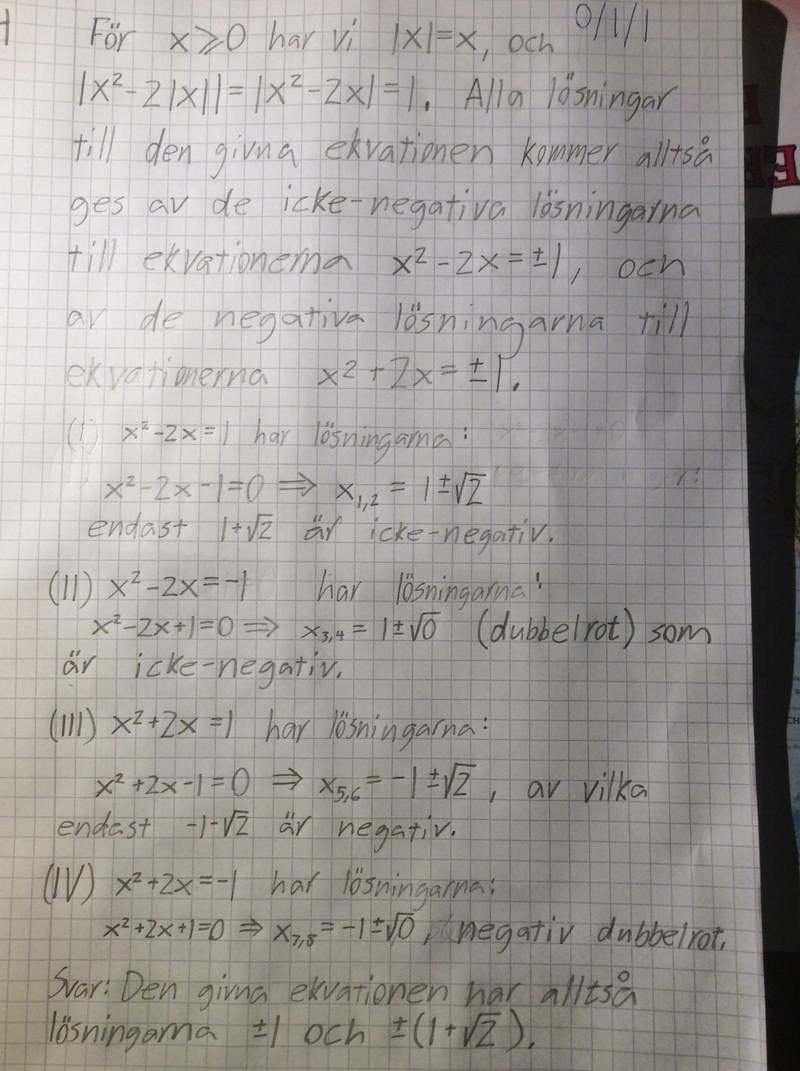 För x≥0 har vi |x|=x, och 0/1/1
|x²-2|x||=|x²-2x|=1. Alla lösningar
till den givna ekvationen kommer alltså
ges av de icke-negativa lösningarna
till ekvationerna x²-2x=±1, och
av de negativa lösningarna till
ekvationerna x²+2x=±1.
(I) x²-2x=1 har lösningarna:
x²-2x-1=0 ⇒ x₁,₂ = 1±√2
endast 1+√2 är icke-negativ.
(II) x²-2x=-1 har lösningarna:
x²-2x+1=0 ⇒ x₃,₄ = 1±√0 (dubbelrot) som
är icke-negativ.
(III) x²+2x=1 har lösningarna:
x²+2x-1=0 ⇒ x₅,₆ = -1±√2, av vilka
endast -1-√2 är negativ.
(IV) x²+2x=-1 har lösningarna:
x²+2x+1=0 ⇒ x₇,₈ = -1±√0, negativ dubbelrot.
Svar: Den givna ekvationen har alltså
lösningarna ±1 och ±(1+√2).